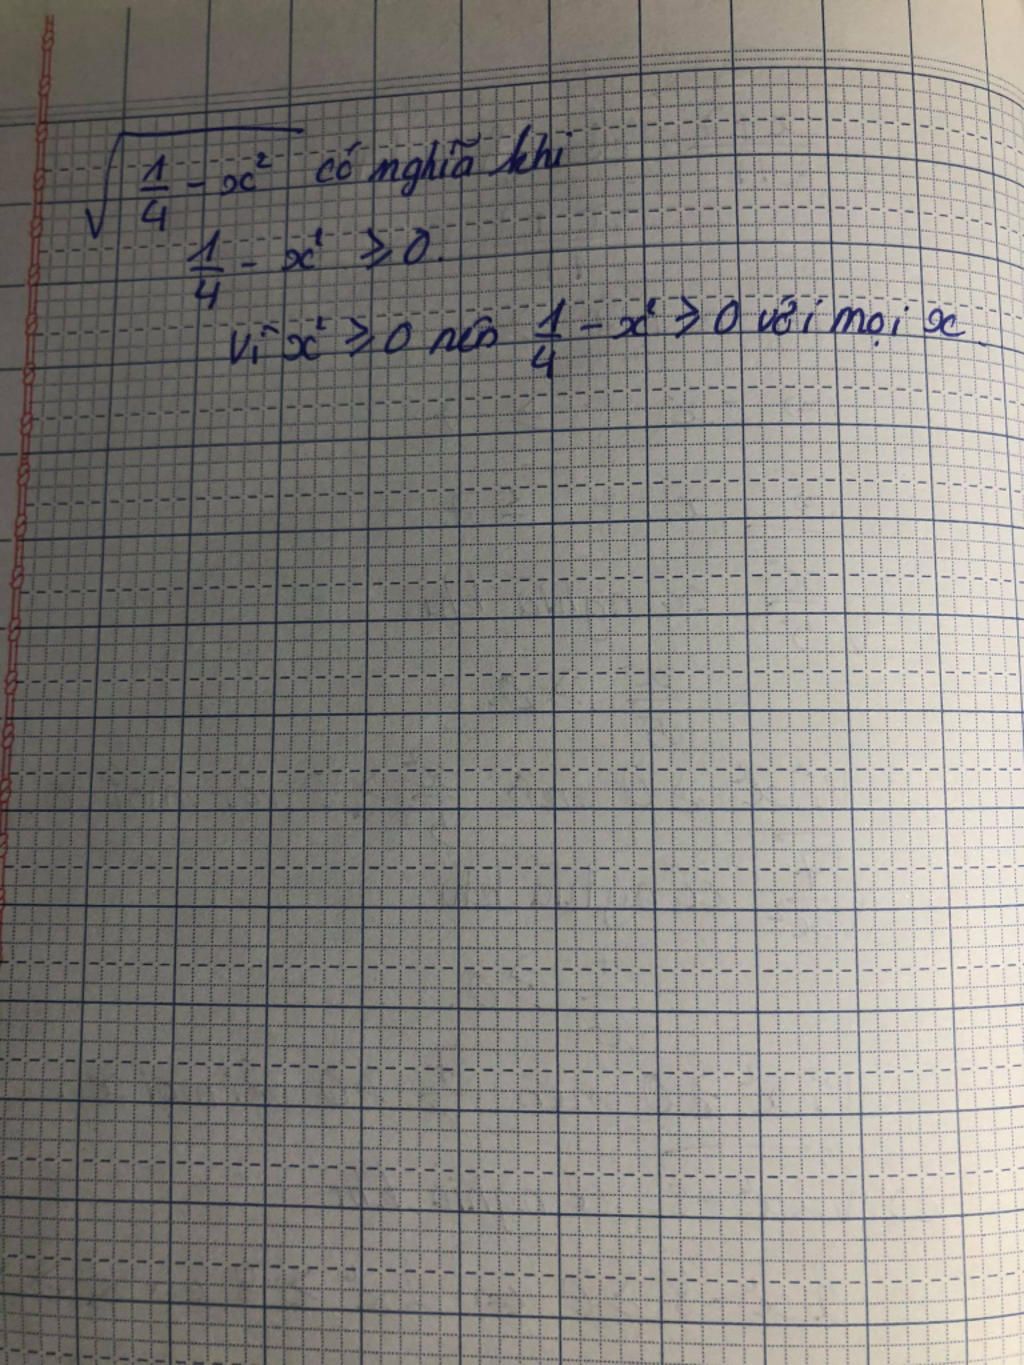 √(1/4 - x²) có nghĩa khi
1/4 - x² ≥ 0.
Vì x² ≥ 0 nên 1/4 - x² ≥ 0 với mọi x.